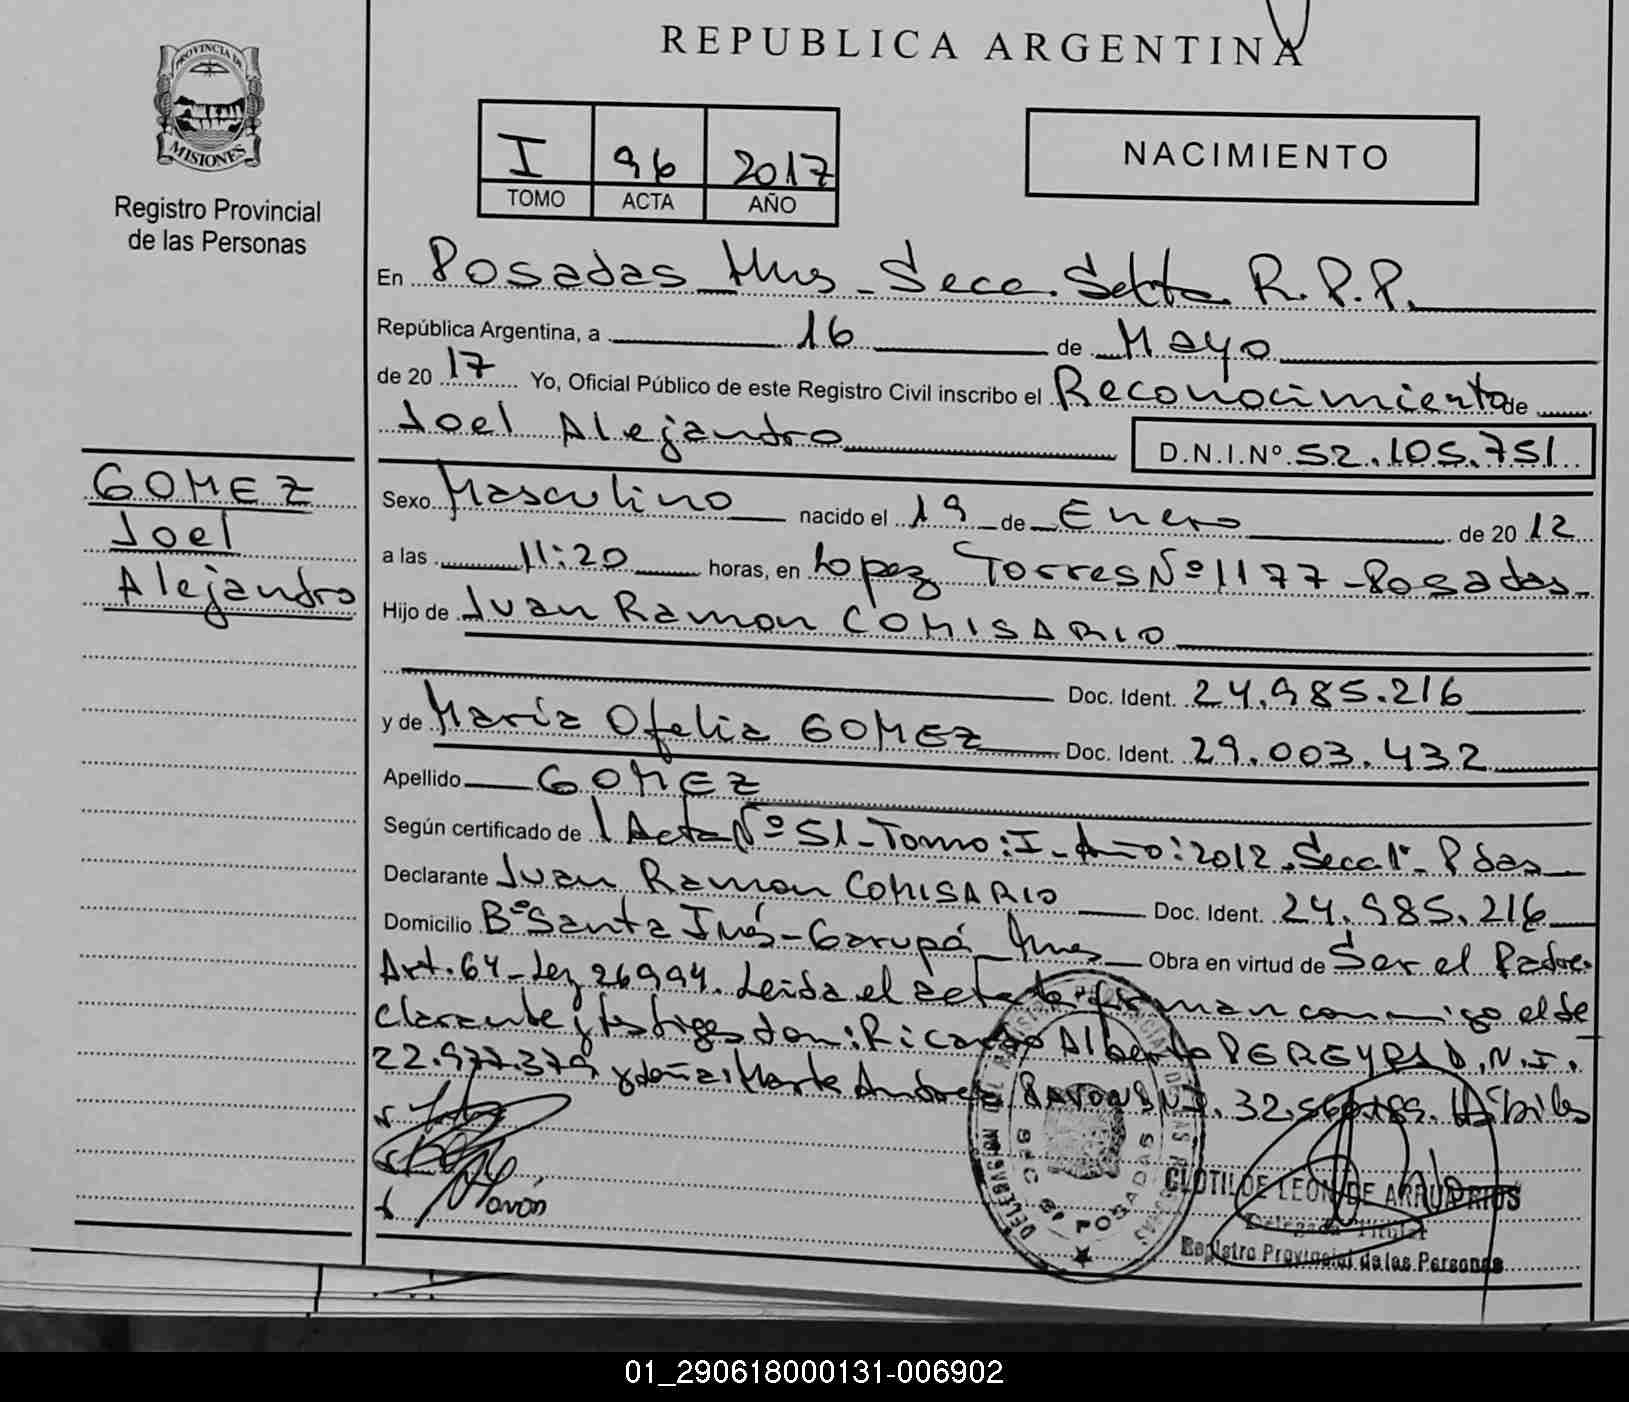 REPUBLICA ARGENTINA
PROVINCIA DE
MISIONES
Registro Provincial
de las Personas
I 96 2017
TOMO ACTA AÑO
NACIMIENTO
En Posadas Mnes - Secc. Setta R.P.P.
República Argentina, a 16 de Mayo
de 20 17 Yo, Oficial Público de este Registro Civil inscribo el Reconocimiento de
Joel Alejandro D.N.I.Nº 52.105.751
GOMEZ
Joel
Alejandro
Sexo Masculino nacido el 19 de Enero de 20 12
a las 11:20 horas, en Lopez Torres Nº 1177 - Posadas
Hijo de Juan Ramon COMISARIO
Doc. Ident. 24.985.216
y de María Ofelia GOMEZ Doc. Ident. 29.003.432
Apellido GOMEZ
Según certificado de Acta Nº 51 - Tomo: I - Año: 2012. Secc 1ª - Pdas
Declarante Juan Ramon COMISARIO Doc. Ident. 24.985.216
Domicilio Bº Santa Inés - Garupá Mnes Obra en virtud de Ser el Padre.
Art. 64 - Ley 26994. Leida el acta firman conmigo el de
clarante y testigos don: Ricardo Alberto PEREYRA D.N.I.
22.977.379 y doña: Marta Andrea PAVON D.N.I. 32. Hábiles
Pavón
SEC 6ª POSADAS
CLOTILDE LEON DE ARRUA RIOS
Delegada Titular
Registro Provincial de las Personas
01_290618000131-006902